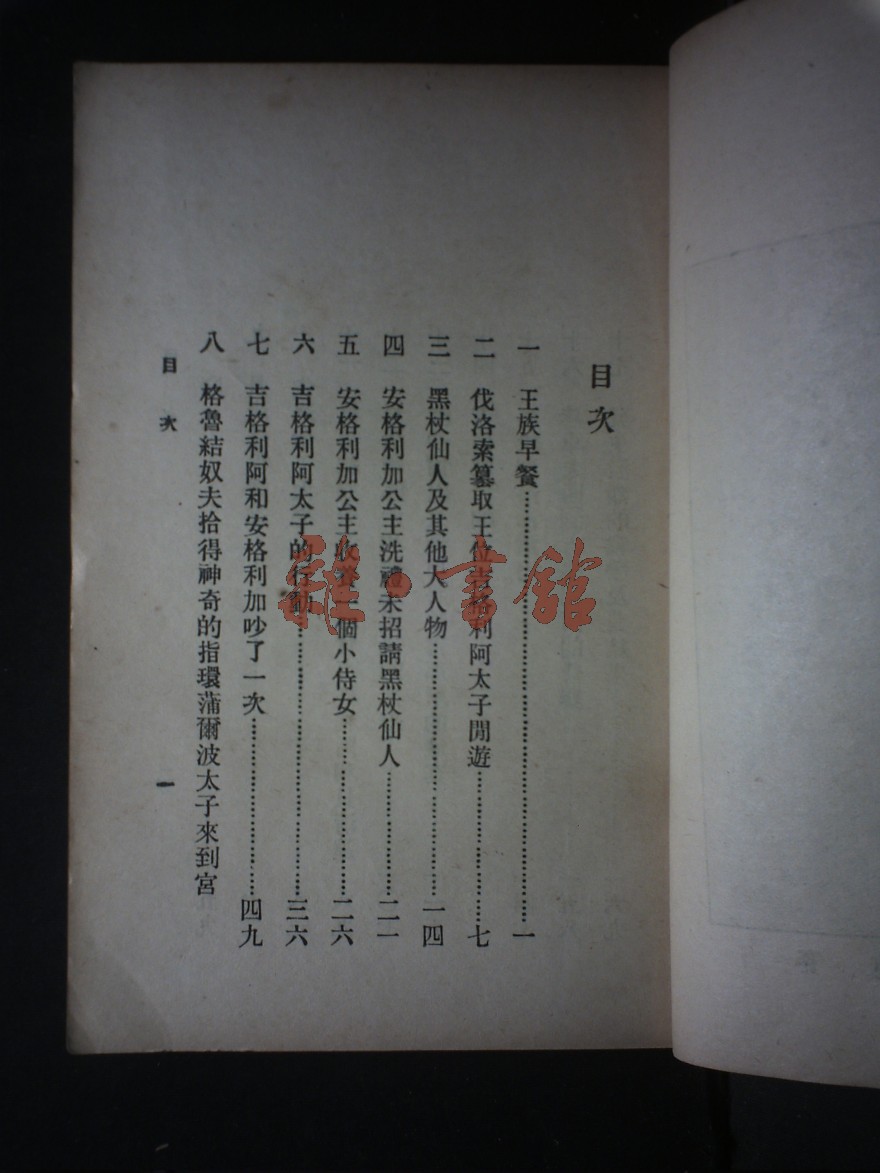 目次
一 王族早餐……一
二 伐洛索篡取王位吉格利阿太子閒遊……七
三 黑杖仙人及其他大人物……一四
四 安格利加公主洗禮未招請黑杖仙人……二一
五 安格利加公主收養一個小侍女……二六
六 吉格利阿太子的行動……三六
七 吉格利阿和安格利加吵了一次……四九
八 格魯結奴夫拾得神奇的指環蒲爾波太子來到宮
目次 一
雜·書館